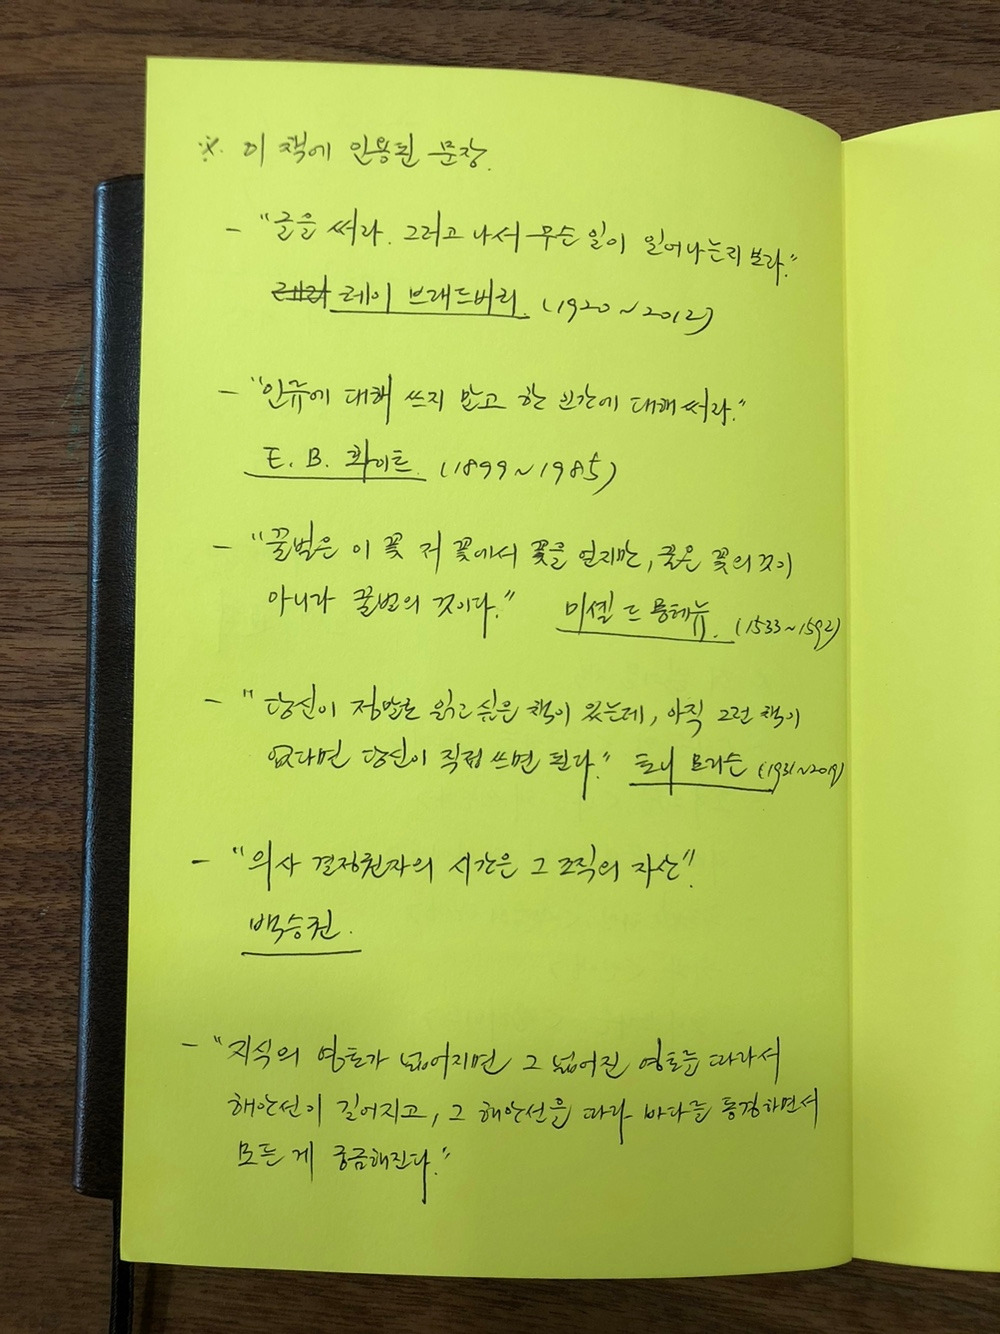 ※. 이 책에 인용된 문장.
- "글을 써라. 그러고 나서 무슨 일이 일어나는지 보라."
레이 브래드버리. (1920~2012)
- "인류에 대해 쓰지 말고 한 인간에 대해 써라."
E. B. 화이트. (1899~1985)
- "꿀벌은 이 꽃 저 꽃에서 꽃을 얻지만, 꿀은 꽃의 것이
아니라 꿀벌의 것이다." 미셸 드 몽테뉴. (1533~1592)
- "당신이 정말로 읽고 싶은 책이 있는데, 아직 그런 책이
없다면 당신이 직접 쓰면 된다." 토니 모리슨 (1931~2019)
- "의사 결정권자의 시간은 그 조직의 자산"!
백승권.
- "지식의 영토가 넓어지면 그 넓어진 영토를 따라서
해안선이 길어지고, 그 해안선을 따라 바다를 동경하면서
모든 게 궁금해진다."